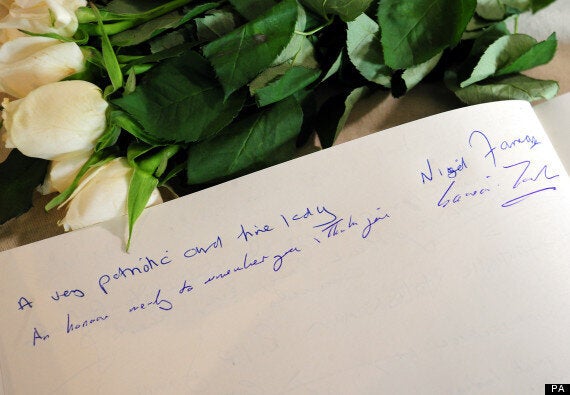 A very patriotic and fine lady
Nigel Farage
An honour really to remember you, Thank you
PA